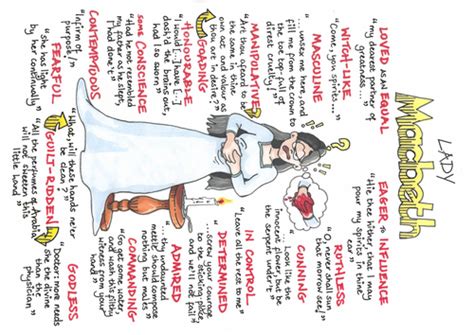 LADY
Macbeth
LOVED AS AN EQUAL
"my dearest partner of
greatness..."
WITCH-LIKE
"Come, you spirits..."
MASCULINE
"...unsex me here, and
fill me from the crown to
the toe top-full of
direst cruelty!"
MANIPULATIVE
"Art thou afeard to be
the same in thine
own act and valour as
thou art in desire?"
GOADING
"I would [...] have [...]
dash'd the brains out,
had I so sworn"
HONOURABLE
SOME CONSCIENCE
"Had he not resembled
my father as he slept,
I had done't"
CONTEMPTUOUS
"Infirm of
purpose!"
FEARFUL
"she has light
by her continually"
EAGER TO INFLUENCE
"Hie thee hither, that I may
pour my spirits in thine
ear"
RUTHLESS
"O, never shall sun
that morrow see!"
CUNNING
"...Look like the
innocent flower, but be
the serpent under't"
IN CONTROL
"Leave all the rest to me"
DETERMINED
"...screw your courage
to the sticking place,
and we'll not fail"
ADMIRED
"...thy undaunted
mettle should compose
nothing but males"
COMMANDING
"Go get some water,
and wash this filthy
witness from your
hand"
GODLESS
Doctor: "more needs
she the divine
than the
physician"
"What, will these hands ne'er
be clean?"
GUILT-RIDDEN
"All the perfumes of Arabia
will not sweeten this
little hand"